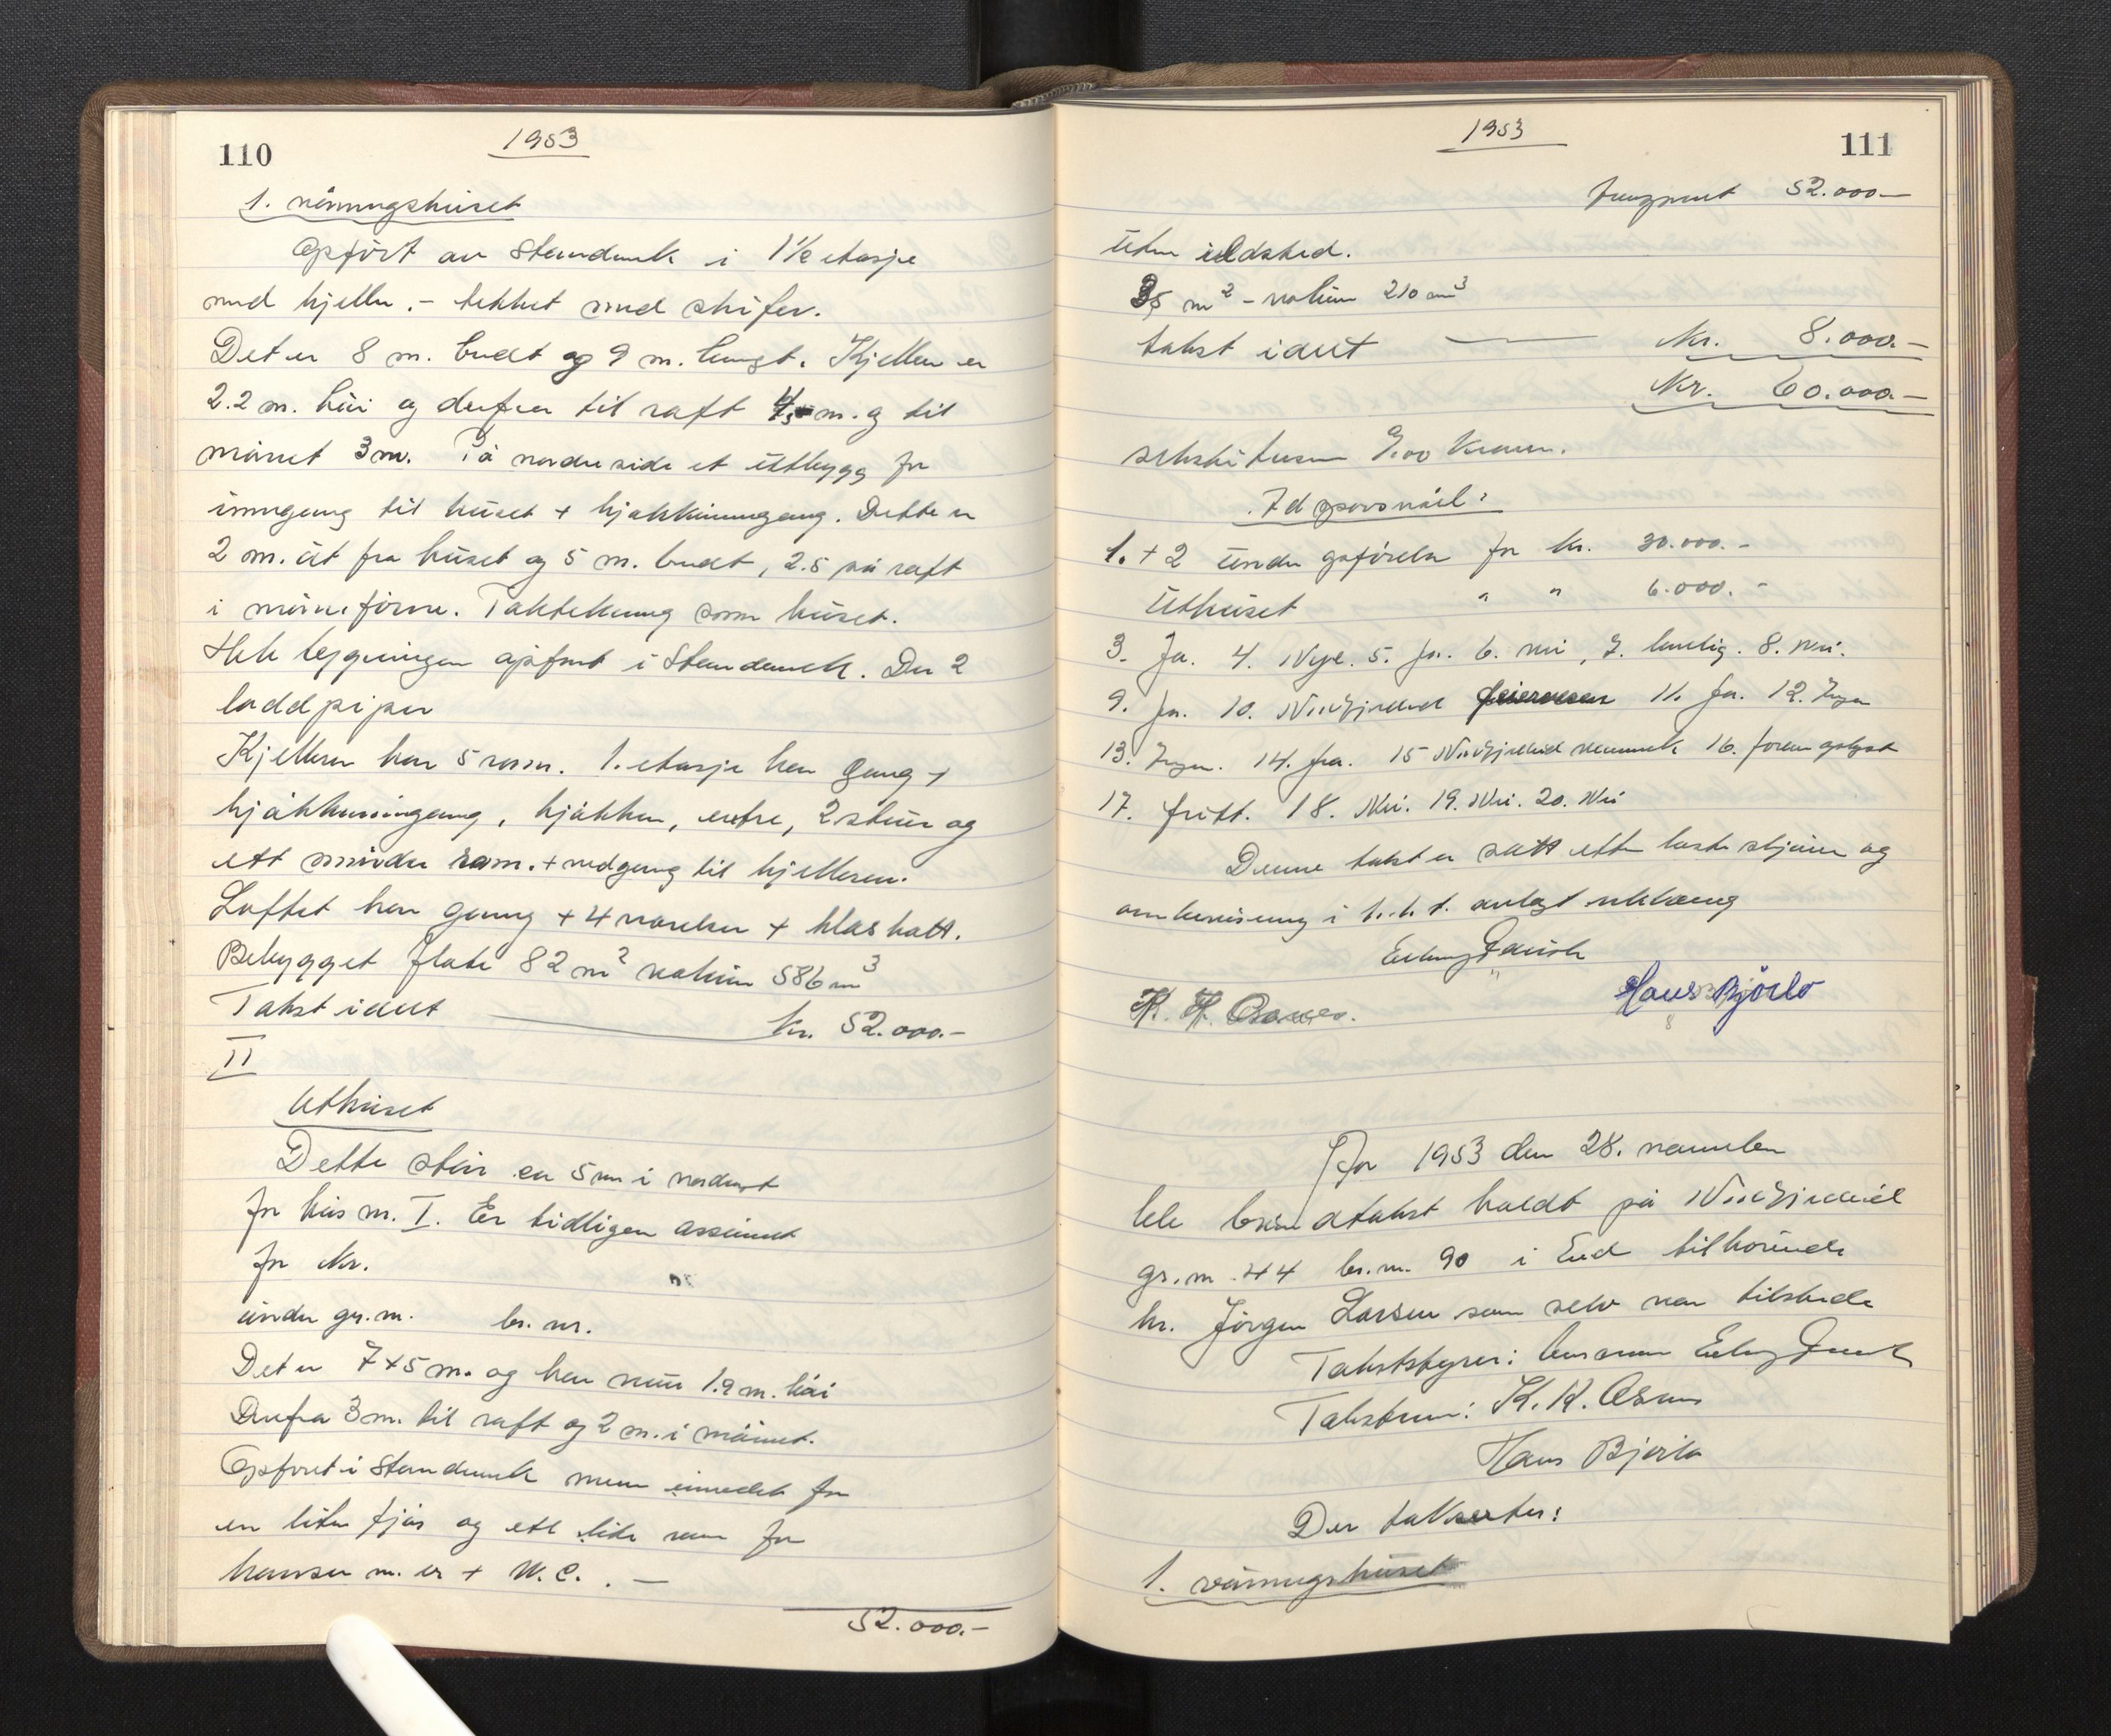 110
1953
1. våningshuset
Opført av stenderverk i 1½ etasje
med kjeller. - tekket med skifer.
Det er 8 m. bredt og 9 m. langt. Kjelleren er
2.2 m. høi og derfra til raft 4,5 m. og til
mønet 3 m. På nordre side et utbygg for
inngang til huset + kjøkkeninngang. Dette er
2 m. ut fra huset og 5 m. bredt, 2.5 på raft
i møneform. Taktekking som huset.
Hele bygningen opført i stenderverk. Der 2
loddpiper
Kjelleren har 5 rom. 1. etasje har gang +
kjøkkeninngang, kjøkken, entre, 2 stuer og
ett mindre rom. + nedgang til kjelleren.
Loftet har gang + 4 værelser + klaskott.
Bebygget flate 82 m² volum 586 m³
Takst i alt kr. 52.000.-
II
Uthuset
Dette står en 5 m i nordvest
for hus nr. I. Er tidligere assurert
for Kr.
under gr.nr. br. nr.
Det er 7x5 m. og har mur 1.9 m. høi
Derfra 3 m. til raft og 2 m. i mønet.
Opført i stenderverk men innredet for
en liten fjøs og ett lite rom for
hønser m. er + W.C. . —
52.000.-
1953
111
52.000.-
Uten ildsted.
35 m² - volum 210 m³
takst i alt Kr. 8.000.-
Kr. 60.000.-
Idspørsmål:
1. + 2 Under opførelse for kr. 30.000.-
Uthuset " " 6.000.-
3. Ja. 4. Nye. 5. Ja. 6. nei, 7. landlig. 8. Nei.
9. Ja. 10. Nordfjordeid 11. Ja. 12. Ingen
13. Ingen. 14. Ja. 15 Nordfjordeid 16. foran oplyst
17. fritt. 18. Nei. 19. Nei. 20. Nei
Denne takst er satt etter beste skjønn og
overbevisning i h.h.t. avlagt erklæring
Hans Bjørlo
År 1953 den 28. novem
ble branntakst holdt på Nordfjordeid
gr.nr. 44 br.nr. 90 i Eid tilhørende
hr. Jørgen Larsen som selv var tilstede
Takstbestyrer: lensmann
Takstmenn: K. K. Osnes
Hans Bjørlo
Der taksertes:
1. våningshuset